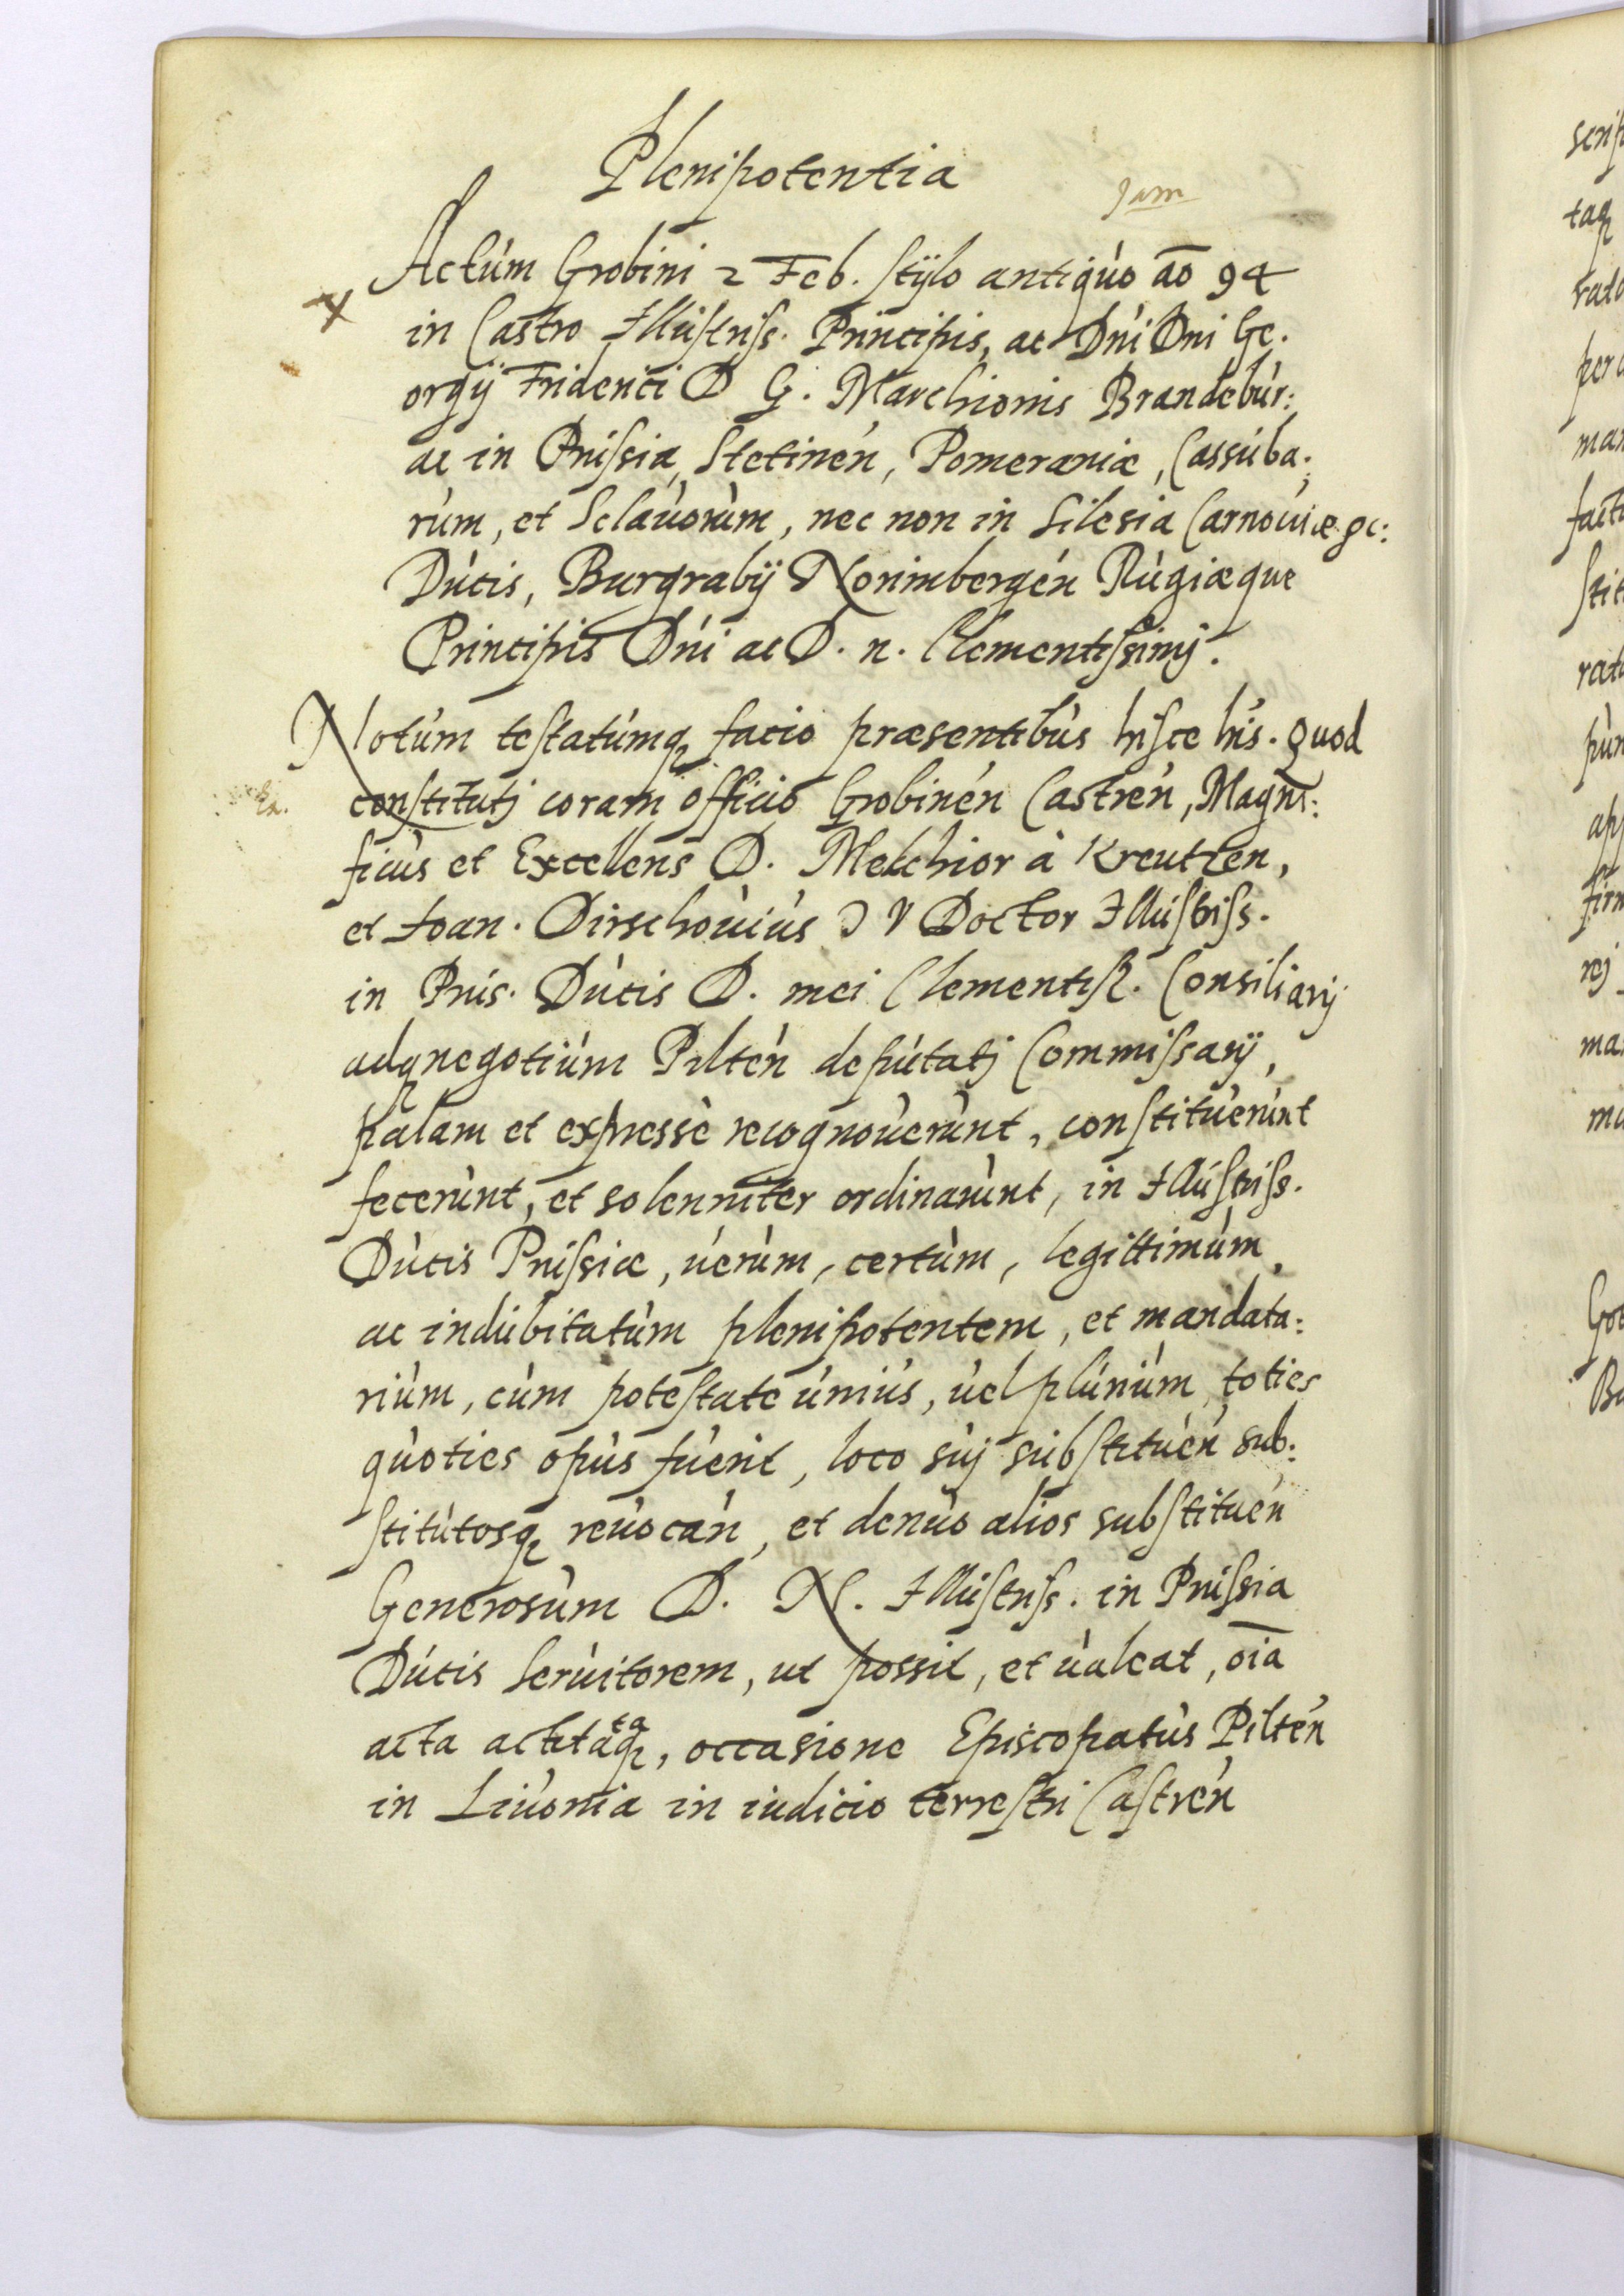 Plenipotentia
Jam
Actùm Grobini 2 Feb. stÿlo antiqùo ao 94
in Castro Illùstriss. Principis, ac Dni Dni Ge.
orgij Friderici D G. Marchionis Brandebùr:
ac in Prùssia, Stetinén, Pomeraniæ, Cassùba:
rùm, et Sclaùorùm, nec non in Silesia Carnoùiæ &c:
Dùcis, Burgrabij Norimbergén Rùgiæque
Principis Dni ac D. n. Clementissimj.
Notùm testatùmq facio præsentibùs hisce lris. Quod
constitutj coram officio Grobinén Castrén, Magni:
ficùs et Excellens D. Melchior à Kreutzen,
et Joan. Dirschoùiùs J V Doctor Illùstriss.
in Prùs. Dùcis D. mei Clementiss. Consiliarij
adq negotiùm Piltén depùtatj Commissarij,
palam et expressè recognoùerùnt, constitùerùnt
fecerùnt, et solenniter ordinarùnt, in Illùstriss.
Dùcis Prùssiæ, ùerùm, certùm, legittimùm,
ac indùbitatùm plenipotentem, et mandata:
riùm, cùm potestate ùniùs, ùel plùriùm, toties
qùoties opùs fùerit, loco sùj sùbstitùén sub:
stitùtosq reùocán, et denùo alios substituén
Generosùm D. N. Illùstriss. in Prùssia
Dùcis Serùitorem, ut possit, et ùaleat, oia
acta actitataq, occasione Episcopatùs Piltén
in Liùonia in iudicio terrestri Castrén